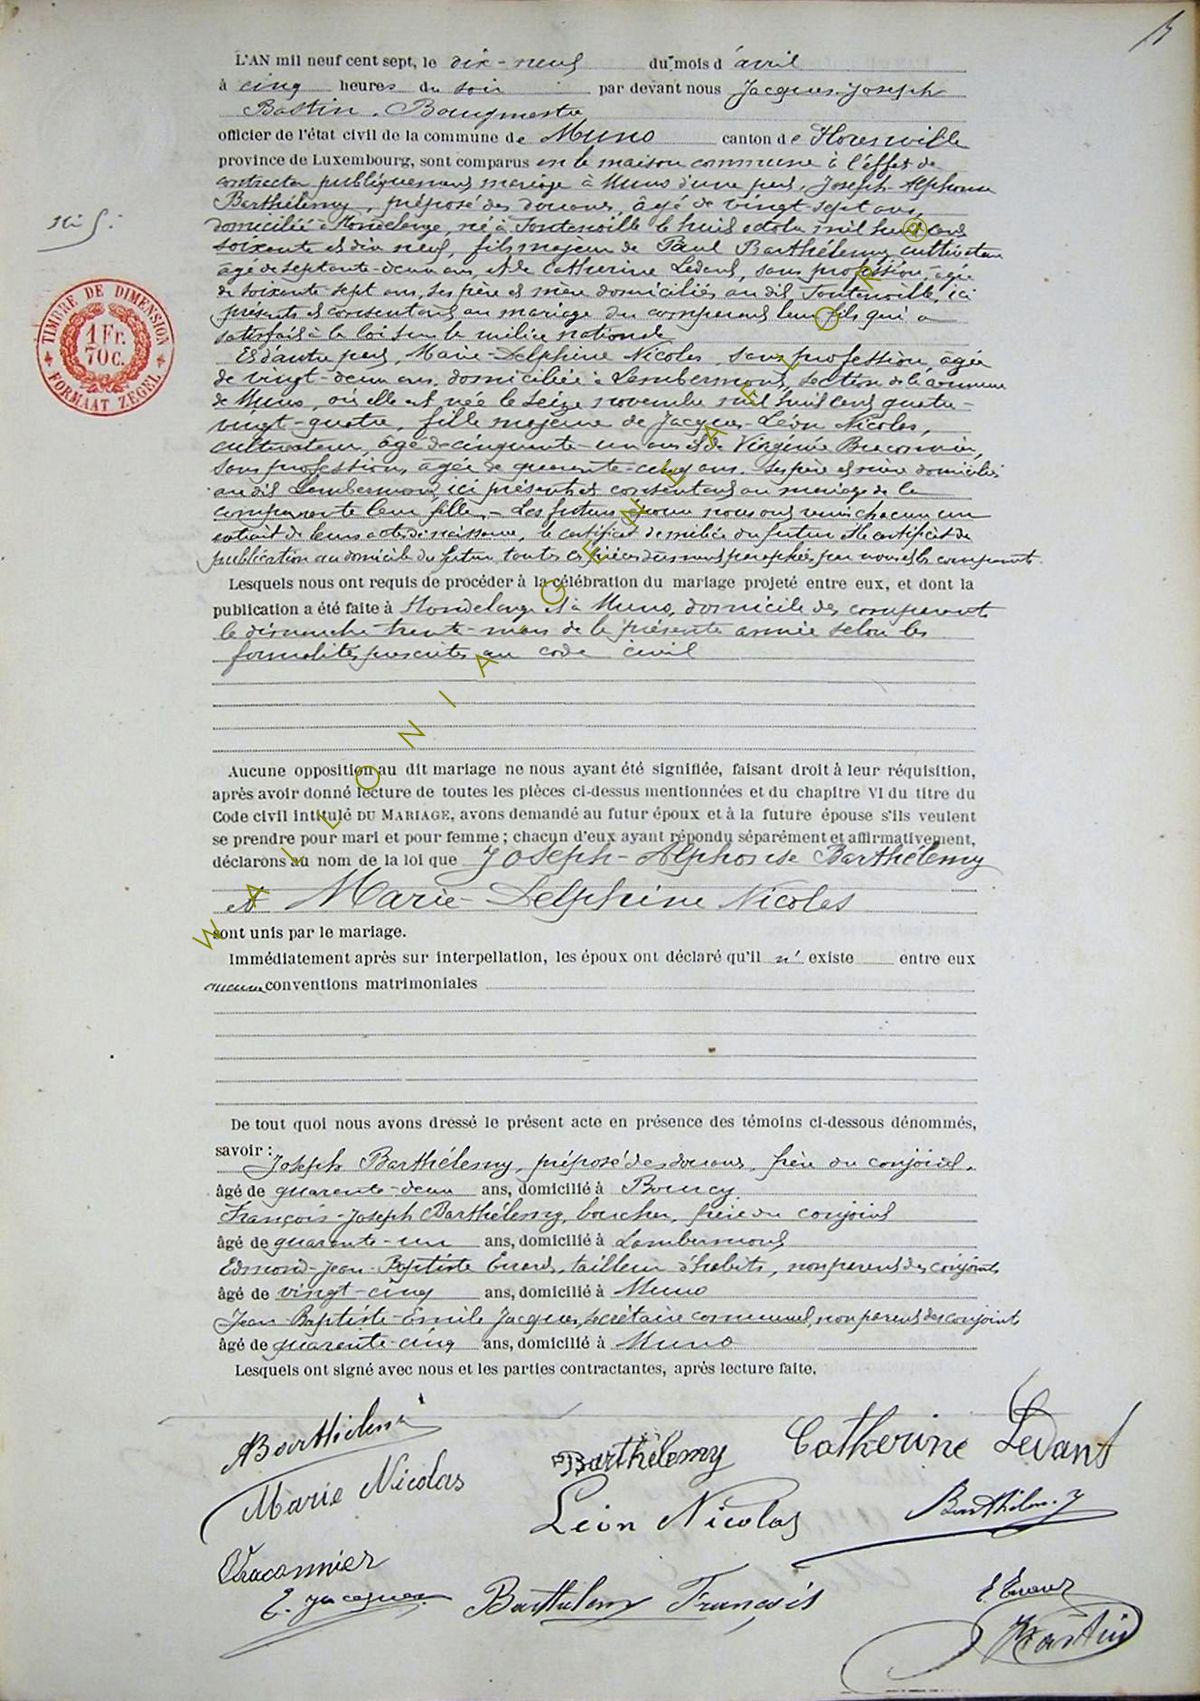 L'AN mil neuf cent sept, le dix-neuf du mois d'avril
à cinq heures du soir par devant nous Jacques-Joseph
Bastin, Bourgmestre
officier de l'état civil de la commune de Muno canton de Florenville
province de Luxembourg, sont comparus en la maison commune à l'effet de
contracter publiquement mariage à Muno d'une part, Joseph-Alphonse
Barthélemy, préposé des douanes, âgé de vingt-sept ans,
domicilié à Hondelange, né à Fontenoille le huit octobre mil huit cent
soixante et dix neuf, fils majeur de Paul Barthélemy, cultivateur
âgé de septante-deux ans, et de Catherine Ledant, sans profession, âgée
de soixante sept ans, ses père et mère domiciliés au dit Fontenoille, ici
présents et consentans au mariage du comparant leur fils qui a
satisfait à la loi sur la milice nationale
Et d'autre part, Marie-Delphine Nicolas, sans profession, âgée
de vingt-deux ans, domiciliée à Lambermont, section de la commune
de Muno, où elle est née le seize novembre mil huit cent quatre-
vingt-quatre, fille majeure de Jacques-Léon Nicolas,
cultivateur, âgé de cinquante-un ans et de Virginie Braconnier,
sans profession, âgée de quarante-cinq ans. Ses père et mère domiciliés
au dit Lambermont, ici présents et consentans au mariage de la
comparante leur fille. - Les futurs époux nous ont remis chacun un
extrait de leurs actes de naissance, le certificat de milice du futur et le certificat de
publication au domicile du futur, toutes ces pièces dûment paraphées par nous et les comparants.
Lesquels nous ont requis de procéder à la célébration du mariage projeté entre eux, et dont la
publication a été faite à Hondelange et à Muno, domicile des comparants
le dimanche trente-mars de la présente année selon les
formalités prescrites au code civil
Aucune opposition au dit mariage ne nous ayant été signifiée, faisant droit à leur réquisition,
après avoir donné lecture de toutes les pièces ci-dessus mentionnées et du chapitre VI du titre du
Code civil intitulé DU MARIAGE, avons demandé au futur époux et à la future épouse s'ils veulent
se prendre pour mari et pour femme ; chacun d'eux ayant répondu séparément et affirmativement,
déclarons au nom de la loi que Joseph-Alphonse Barthélemy
et Marie-Delphine Nicolas
sont unis par le mariage.
Immédiatement après sur interpellation, les époux ont déclaré qu'il n' existe entre eux
aucune conventions matrimoniales
De tout quoi nous avons dressé le présent acte en présence des témoins ci-dessous dénommés,
savoir :
Joseph Barthélemy, préposé des douanes, frère du conjoint,
âgé de quarante-deux ans, domicilié à Bourcy
François-Joseph Barthélemy, boucher, frère du conjoint
âgé de quarante-un ans, domicilié à Lambermont
Edmond-Jean-Baptiste Evrard, tailleur d'habits, non parent des conjoints
âgé de vingt-cinq ans, domicilié à Muno
Jean-Baptiste-Emile Jacques, secrétaire communal, non parent des conjoints
âgé de quarante-cinq ans, domicilié à Muno
Lesquels ont signé avec nous et les parties contractantes, après lecture faite.
ABarthélemy
Barthélemy
Catherine Ledant
Marie Nicolas
Léon Nicolas
Barthélemy
VBraconnier
E. Jacques
Barthelemy François
E. Evrard
Bastin
N° 5.
TIMBRE DE DIMENSION
1 Fr.
70c.
FORMAAT ZEGEL
WALLONIA - GENEAFLOR ®